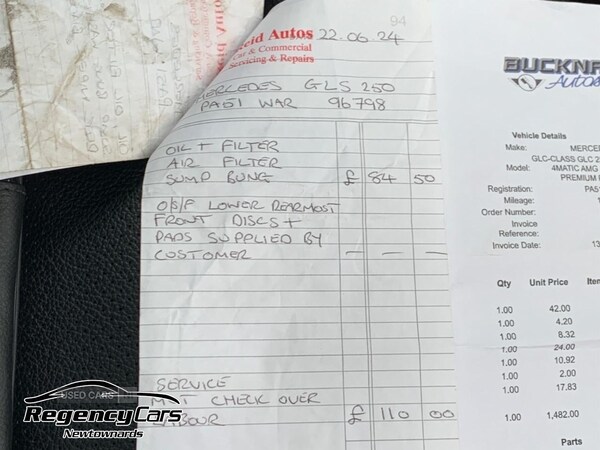 94
eid Autos 22.06.24
Car & Commercial
Servicing & Repairs
MERCEDES GLS 250
PA51 WAR 96798
OIL + FILTER
AIR FILTER
SUMP BUNG £ 84 50
O/S/F LOWER REARMOST
FRONT DISCS +
PADS SUPPLIED BY
CUSTOMER — — —
SERVICE
MOT CHECK OVER
LABOUR £ 110 00
BUCKNA
Autos
Vehicle Details
Make: MERCED
GLC-CLASS GLC 2
Model: 4MATIC AMG
PREMIUM
Registration: PA5
Mileage: 1
Order Number:
Invoice
Reference:
Invoice Date: 13
Qty Unit Price Item
1.00 42.00
1.00 4.20
1.00 8.32
1.00 24.00
1.00 10.92
1.00 2.00
1.00 17.83
1.00 1,482.00
Parts
USED CARS
Regency Cars
Newtownards